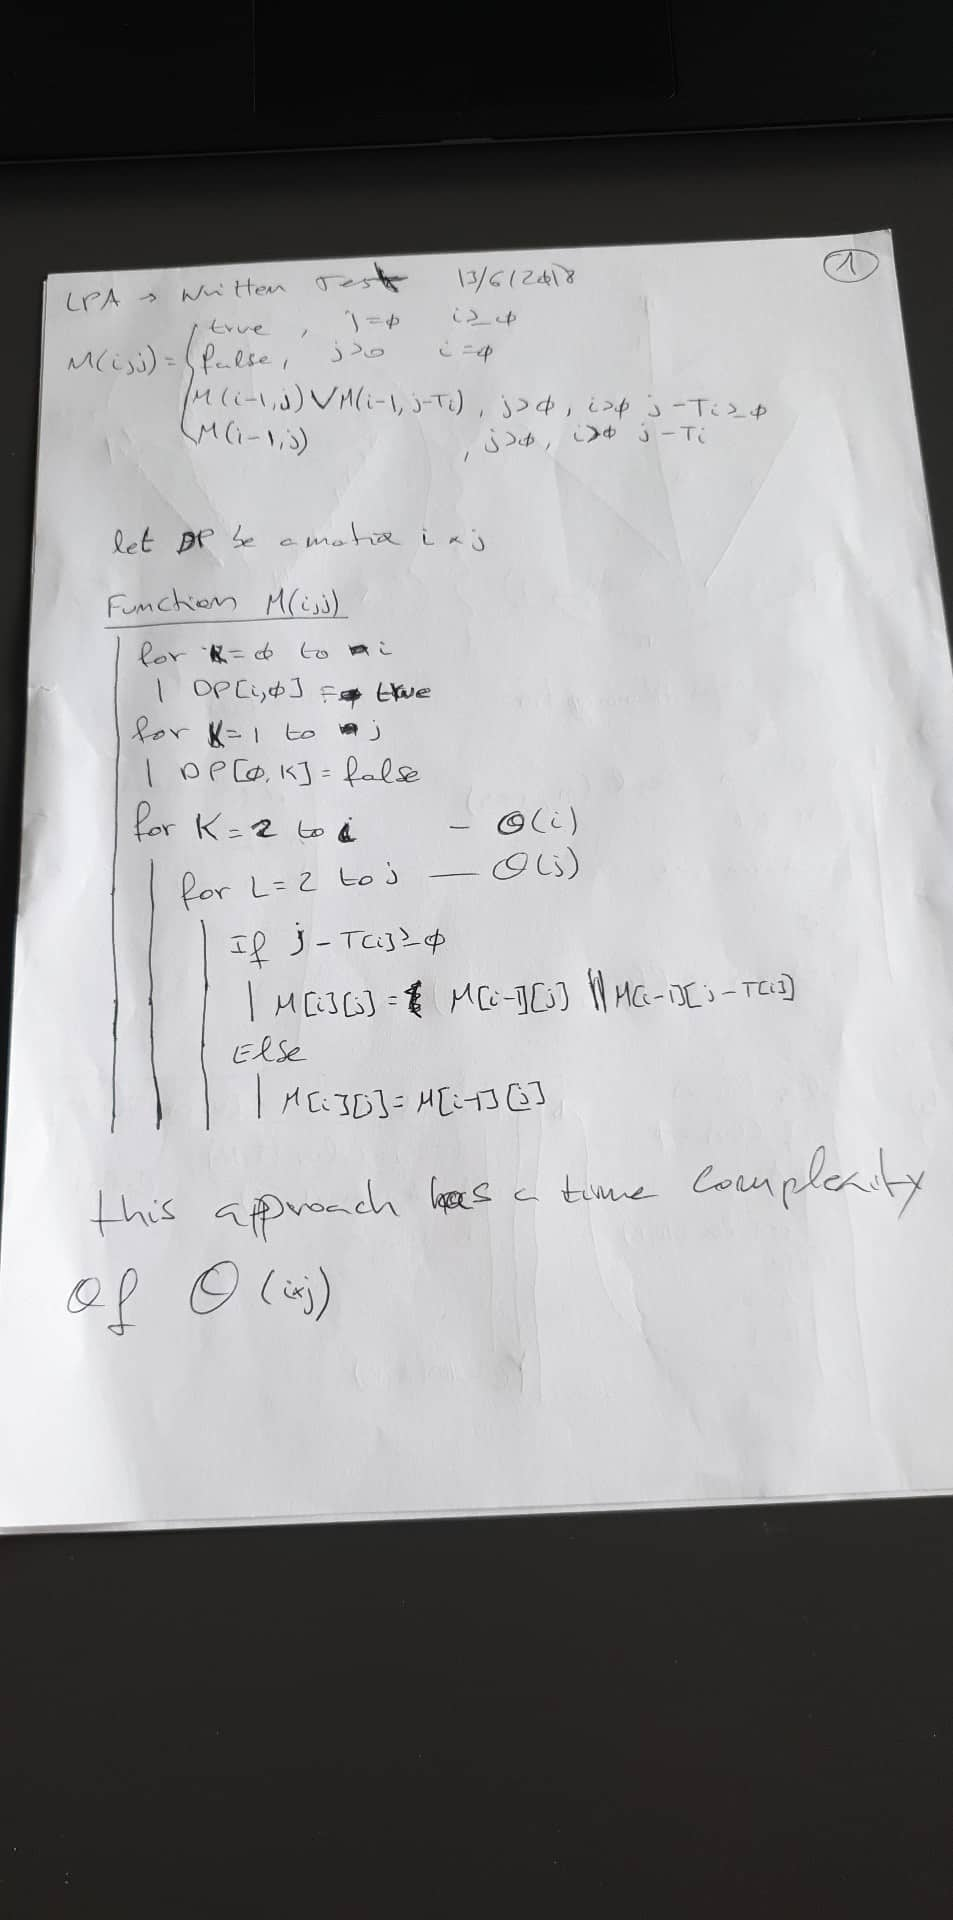 1
LPA → Written Test 13/6/2018
M(i,j) = { true , j=ϕ i≥ϕ
false, j>0 i=ϕ
M(i-1,j) ∨ M(i-1, j-Ti) , j>ϕ, i>ϕ j-Ti≥ϕ
M(i-1,j) , j>ϕ, i>ϕ j-Ti
let DP be a matrix i x j
Function M(i,j)
for K=ϕ to i
DP[i,ϕ] = true
for K=1 to j
DP[ϕ,K] = false
for K=2 to i - O(i)
for L=2 to j — O(j)
If j-T[i]≥ϕ
M[i][j] = M[i-1][j] || M[i-1][j-T[i]]
Else
M[i][j] = M[i-1][j]
this approach has a time complexity
of O(ixj)